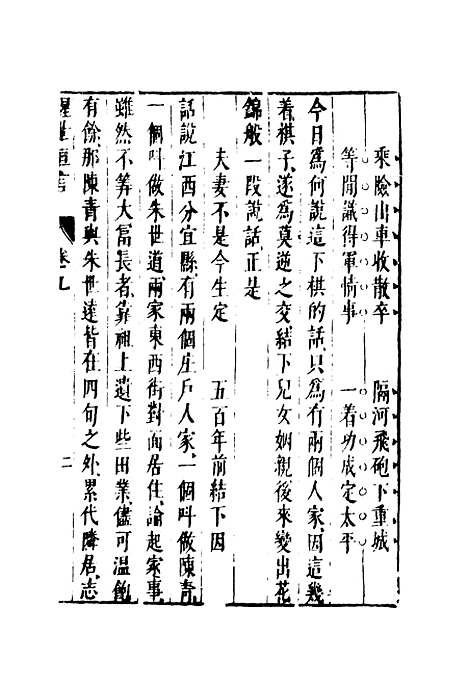 乘險出車收散卒　隔河飛砲下重城
等閒識得軍情事　一着功成定太平
今日爲何說這下棋的話只爲有兩個人家因這幾
着棋子遂爲莫逆之交結下兒女姻親後來變出花
錦般一段說話正是
夫妻不是今生定　五百年前結下因
話說江西分宜縣有兩個庄戶人家一個叫做陳青
一個叫做朱世遠兩家東西街對面居住論起家事
雖然不算大富長者靠祖上遺下些田業儘可溫飽
有餘那陳青與朱世遠皆在四句之外累代隣居志
醒世恒言　卷九　二